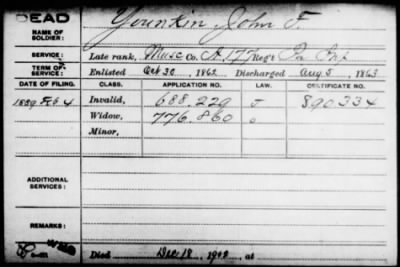 DEAD
Younkin, John F.
NAME OF SOLDIER:
SERVICE: Late rank, Musc Co. A, 177 Reg't Pa Inf
TERM OF SERVICE: Enlisted Oct 30, 1862 Discharged Aug 5, 1863
DATE OF FILING. CLASS. APPLICATION NO. LAW. CERTIFICATE NO.
1889 Feb 4 Invalid, 688.229 J 890334
Widow, 776.860 o
Minor,
ADDITIONAL SERVICES:
REMARKS:
Died Dec 18, 1908, at